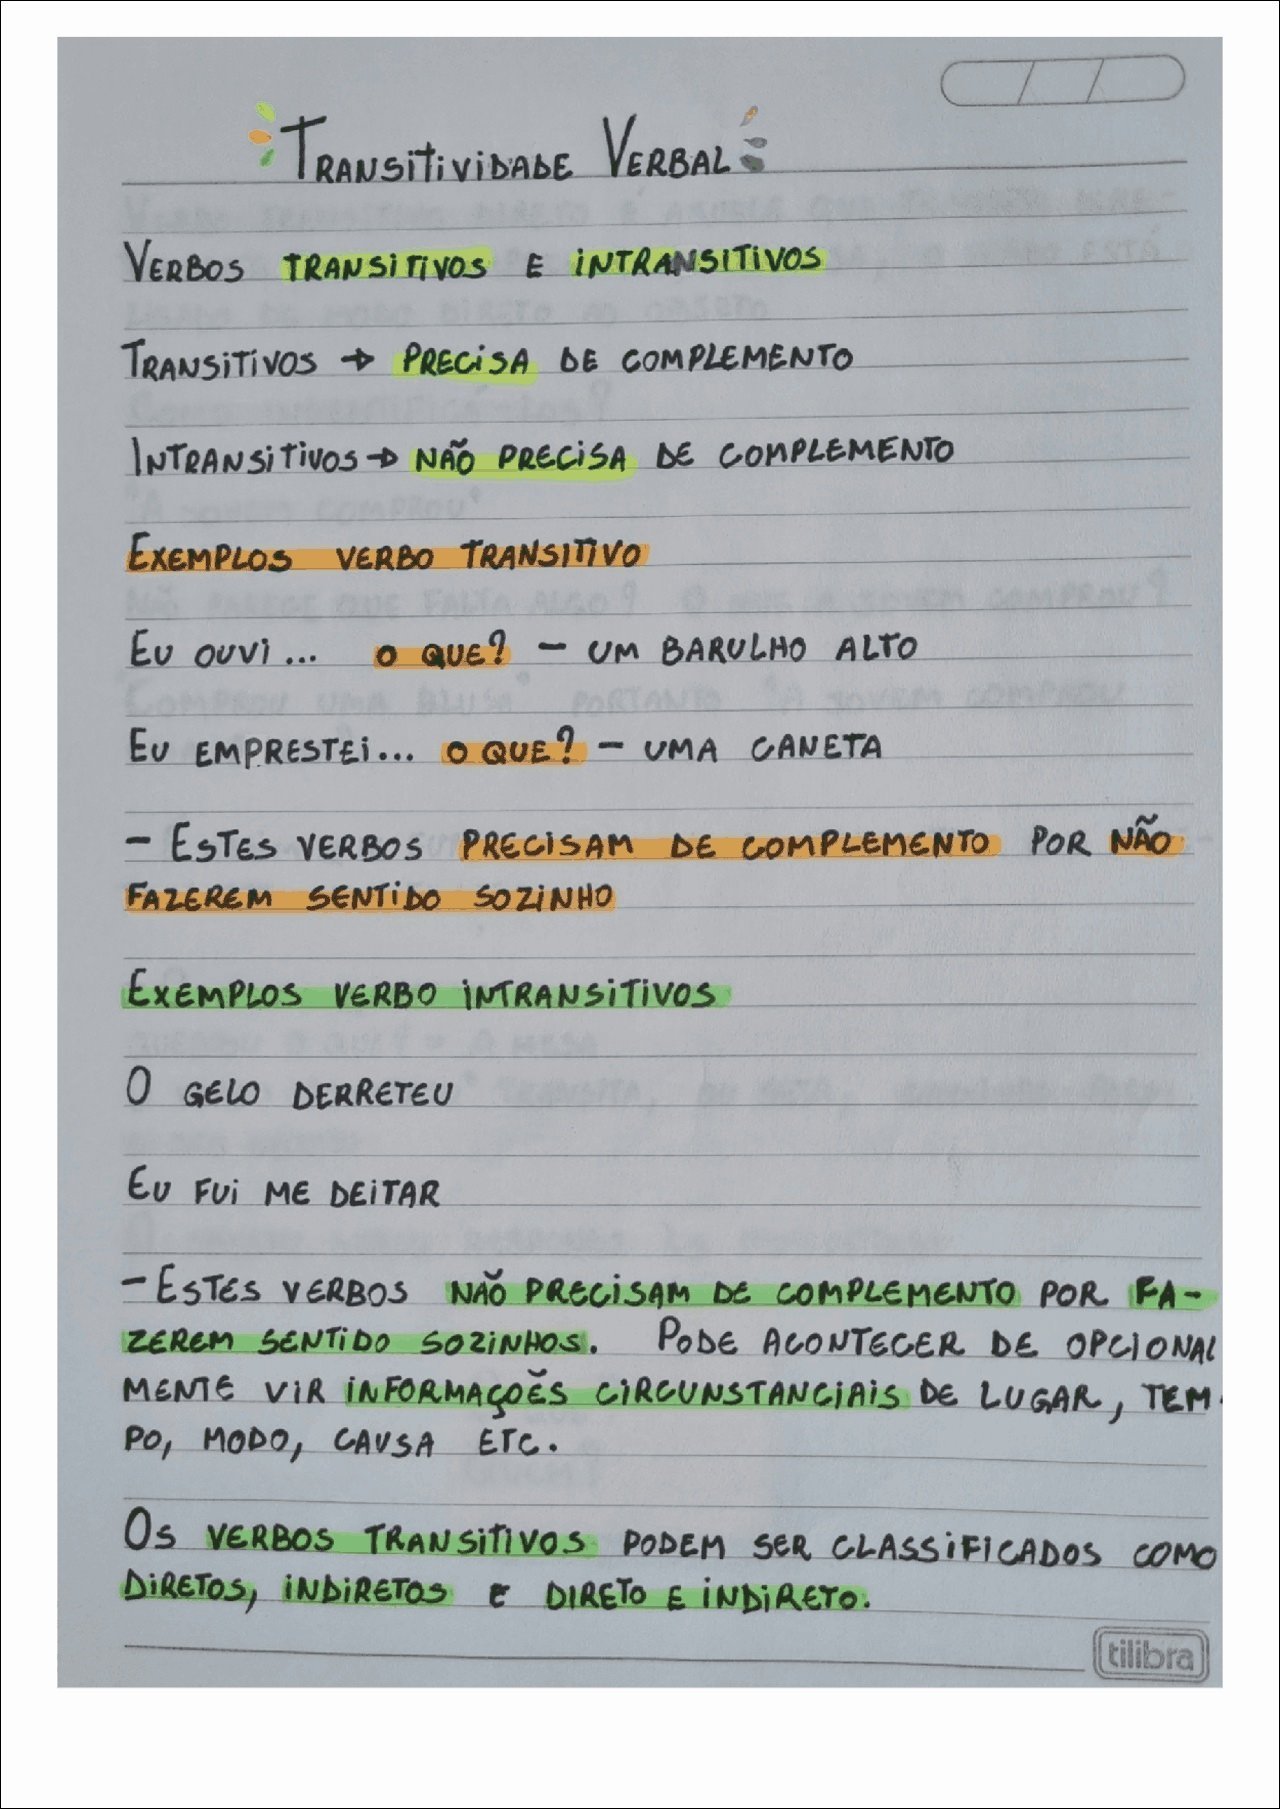 TRANSITIVIDADE VERBAL
VERBOS TRANSITIVOS E INTRANSITIVOS
TRANSITIVOS → PRECISA DE COMPLEMENTO
INTRANSITIVOS → NÃO PRECISA DE COMPLEMENTO
EXEMPLOS VERBO TRANSITIVO
EU OUVI... O QUE? - UM BARULHO ALTO
EU EMPRESTEI... O QUE? - UMA CANETA
- ESTES VERBOS PRECISAM DE COMPLEMENTO POR NÃO
FAZEREM SENTIDO SOZINHO
EXEMPLOS VERBO INTRANSITIVOS
O GELO DERRETEU
EU FUI ME DEITAR
- ESTES VERBOS NÃO PRECISAM DE COMPLEMENTO POR FA-
ZEREM SENTIDO SOZINHOS. PODE ACONTECER DE OPCIONAL
MENTE VIR INFORMAÇOẼS CIRCUNSTANCIAIS DE LUGAR, TEM-
PO, MODO, CAUSA ETC.
OS VERBOS TRANSITIVOS PODEM SER CLASSIFICADOS COMO
DIRETOS, INDIRETOS E DIRETO E INDIRETO.
tilibra